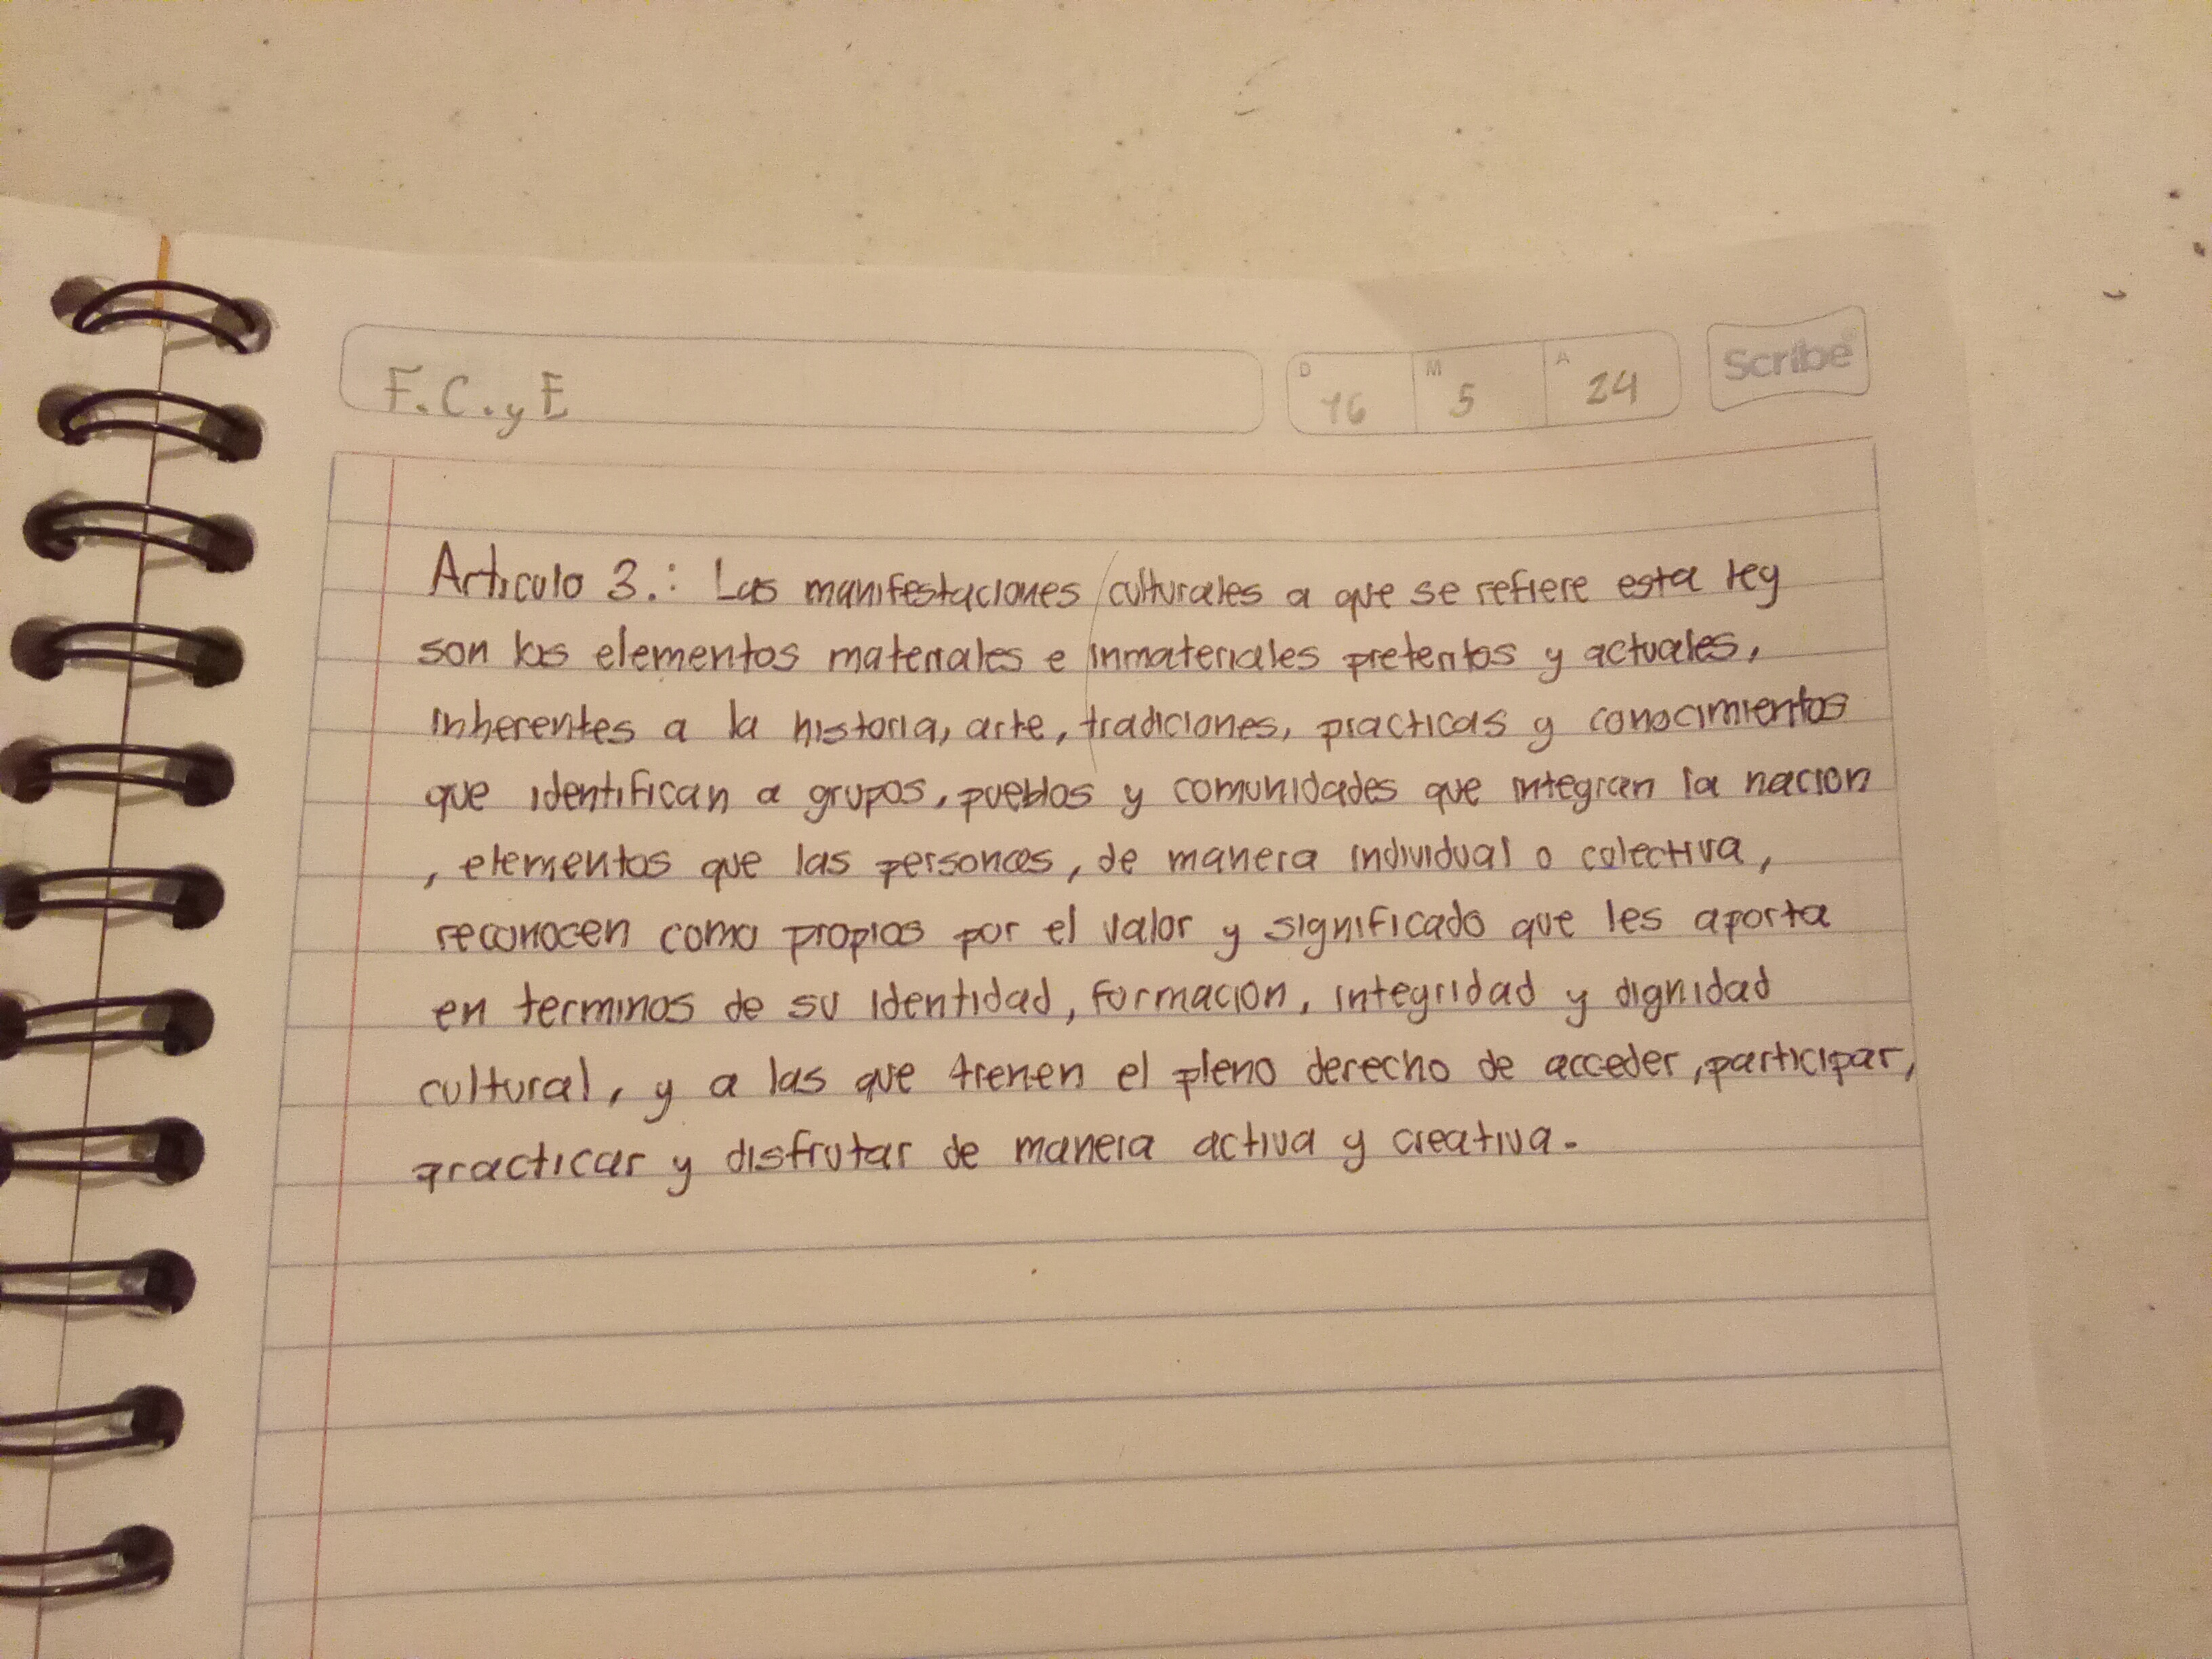 F.C.y E
D 16 M 5 A 24
Scribe
Articulo 3.: Las manifestaciones culturales a que se refiere esta ley
son los elementos materiales e inmateriales pretentos y actuales,
inherentes a la historia, arte, tradiciones, practicas y conocimientos
que identifican a grupos, pueblos y comunidades que integran la nacion
, elementos que las personas, de manera individual o colectiva,
reconocen como propios por el valor y significado que les aporta
en terminos de su identidad, formacion, integridad y dignidad
cultural, y a las que tienen el pleno derecho de acceder, participar,
practicar y disfrutar de manera activa y creativa.